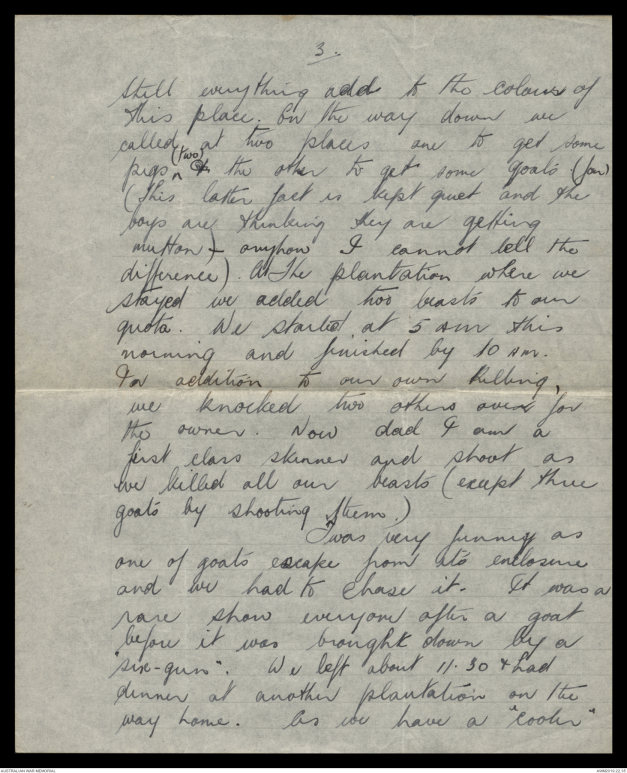 3.
Still everything adds to the colour of
this place. On the way down we
called at two places one to get some
pigs (two) & the other to get some goats (four)
(This latter fact is kept quiet and the
boys are thinking they are getting
mutton) – anyhow I cannot tell the
difference). At the plantation where we
stayed we added two beasts to our
quota. We started at 5 am this
morning and finished by 10 am.
In addition to our own killing,
we knocked two others over for
the owner. Now dad I am a
first class skinner and shoot as
we killed all our beasts (except three
goats by shooting them.)
Twas very funny as
one of goats escape from its enclosure
and we had to chase it. It was a
rare show everyone after a goat
before it was brought down by a
"six-gun". We left about 11.30 & had
dinner at another plantation on the
way home. As we have a "cooler"
AUSTRALIAN WAR MEMORIAL